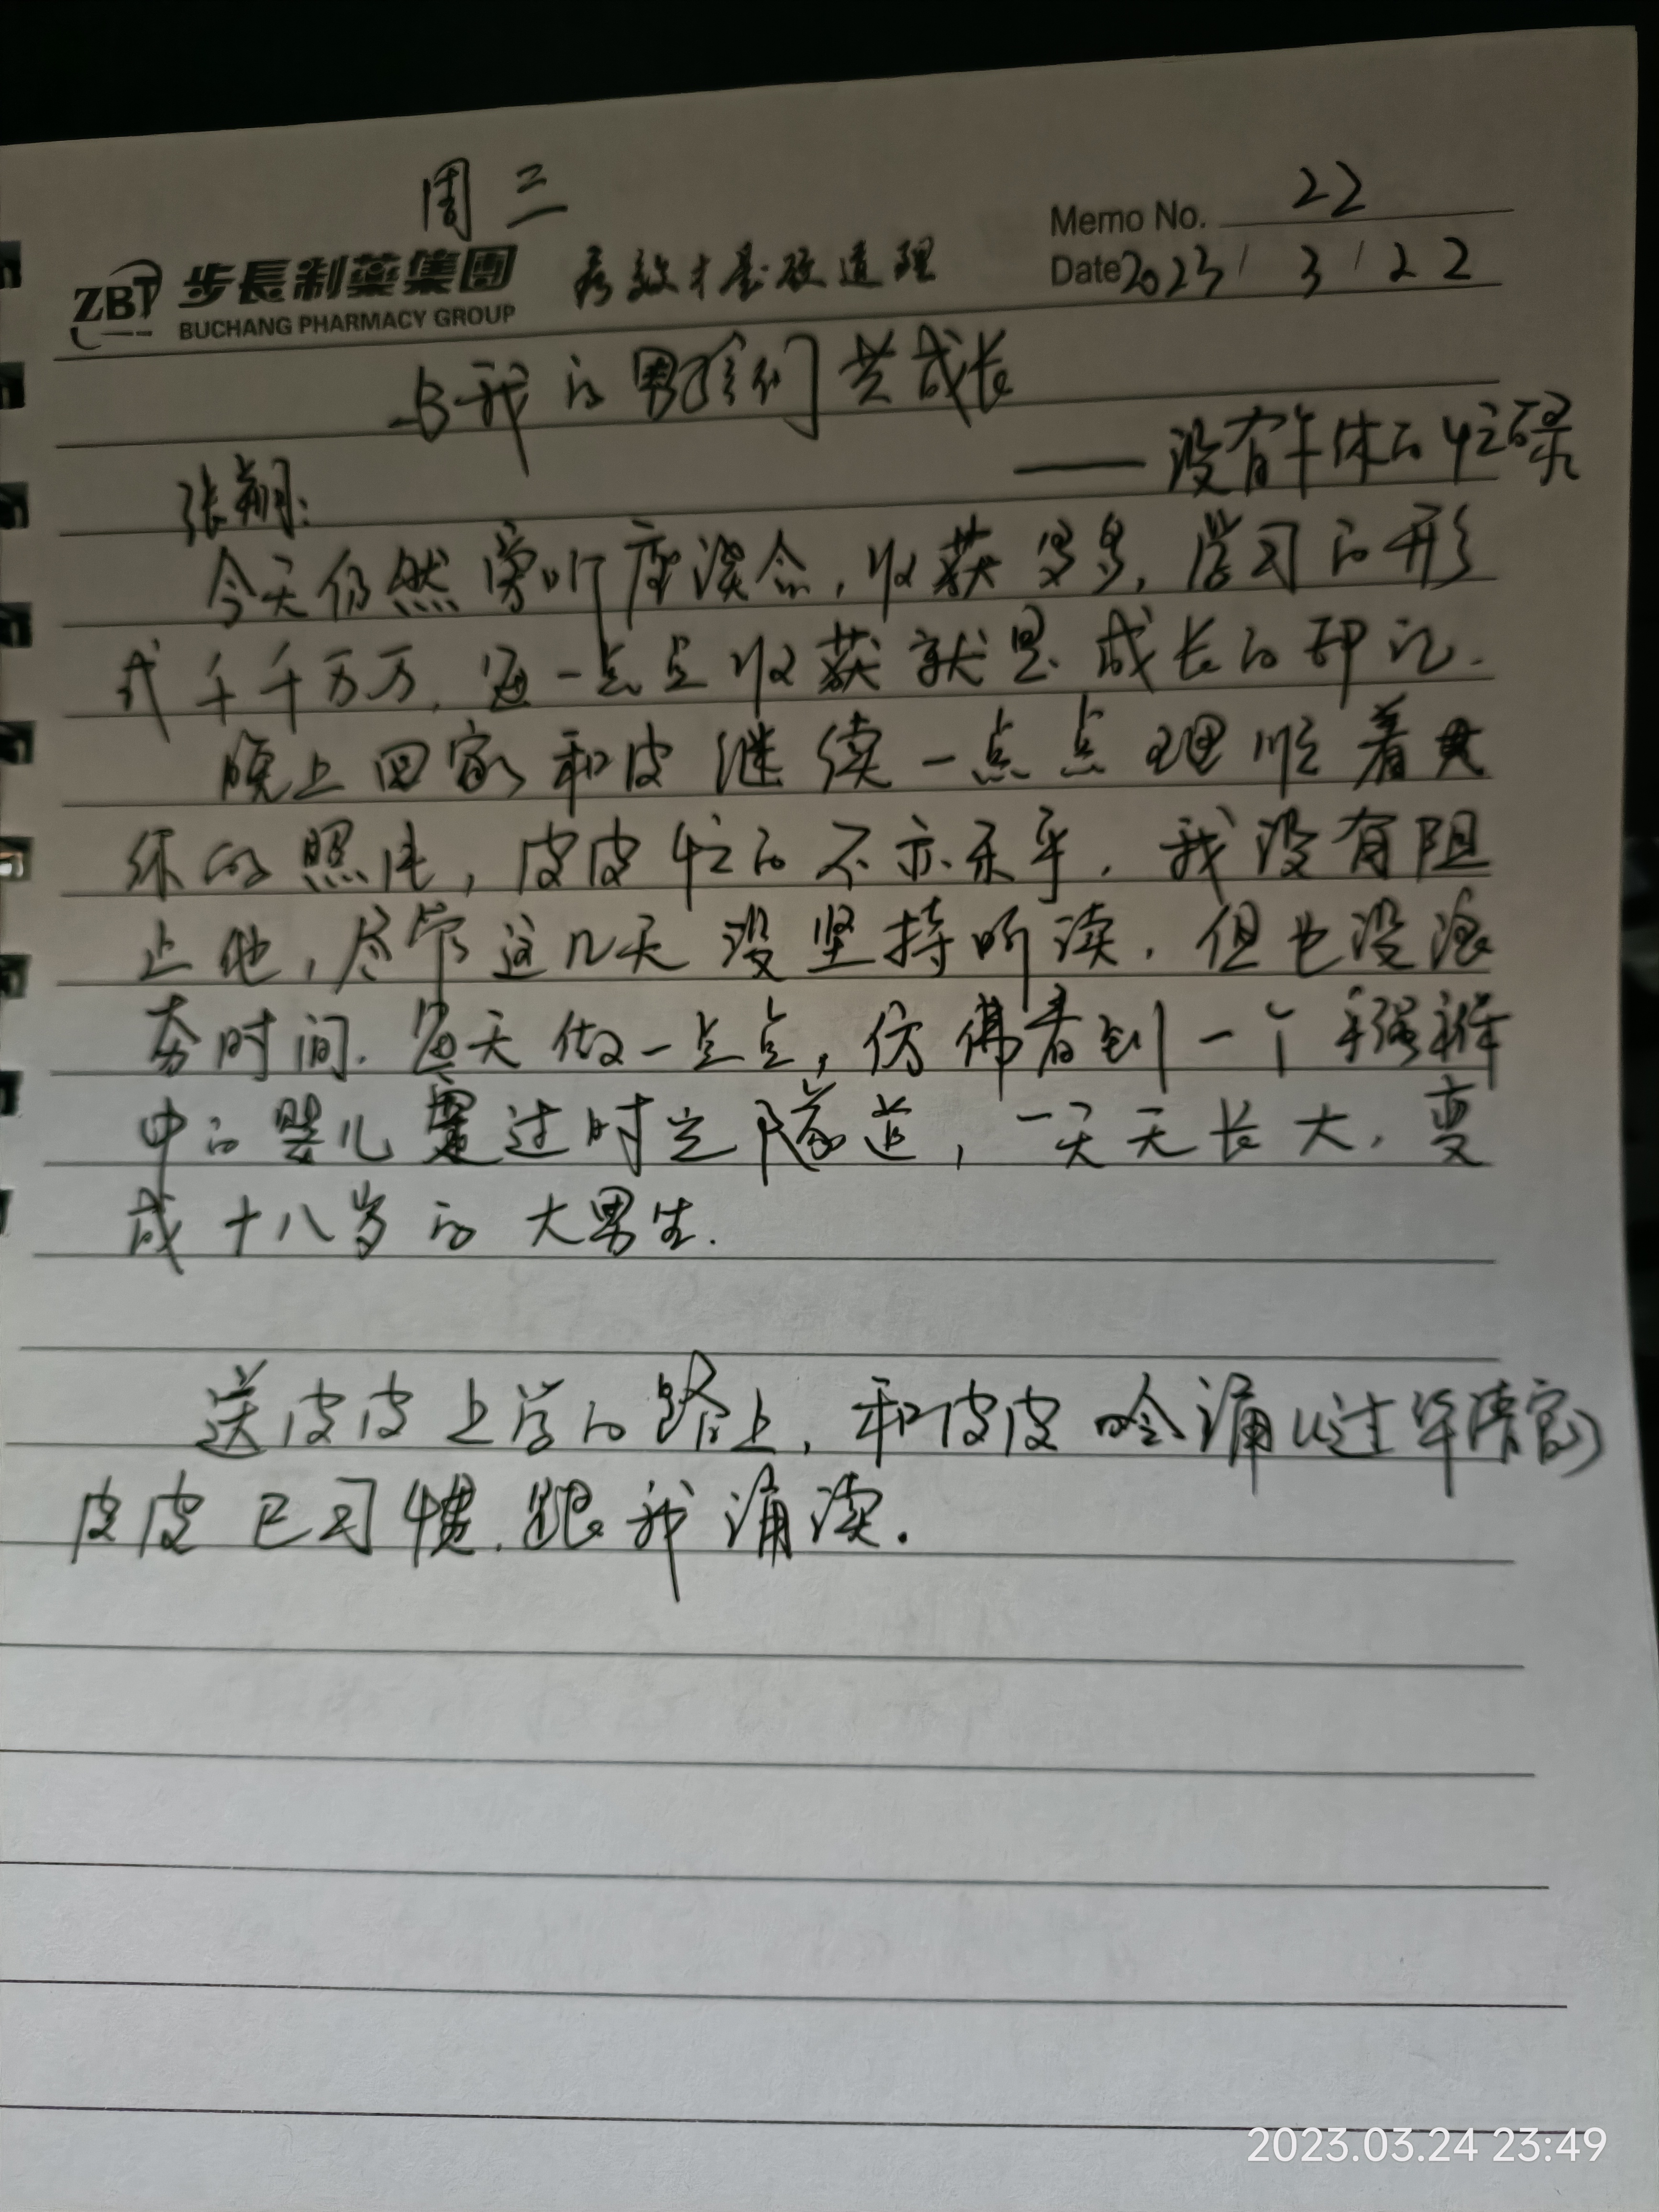 周三
Memo No. 22
ZBT 步長制藥集團 疗效才是硬道理
Date 2023/3/22
BUCHANG PHARMACY GROUP
与我的男孩们共成长
——没有午休的忙碌
张朔:
今天仍然旁听座谈会,收获多多,学习的形
式千千万万,每一点点收获就是成长的印记.
晚上回家和皮继续一点点理顺着
你的照片,皮皮忙的不亦乐乎.我没有阻
止他,尽管这几天没坚持听读.但也没浪
费时间.每天做一点点,仿佛看到一个襁褓
中的婴儿穿过时空隧道,一天天长大,变
成十八岁的大男生.
送皮皮上学的路上,和皮皮吟诵《过华清宫》
皮皮已习惯.跟我诵读.
2023.03.24 23:49